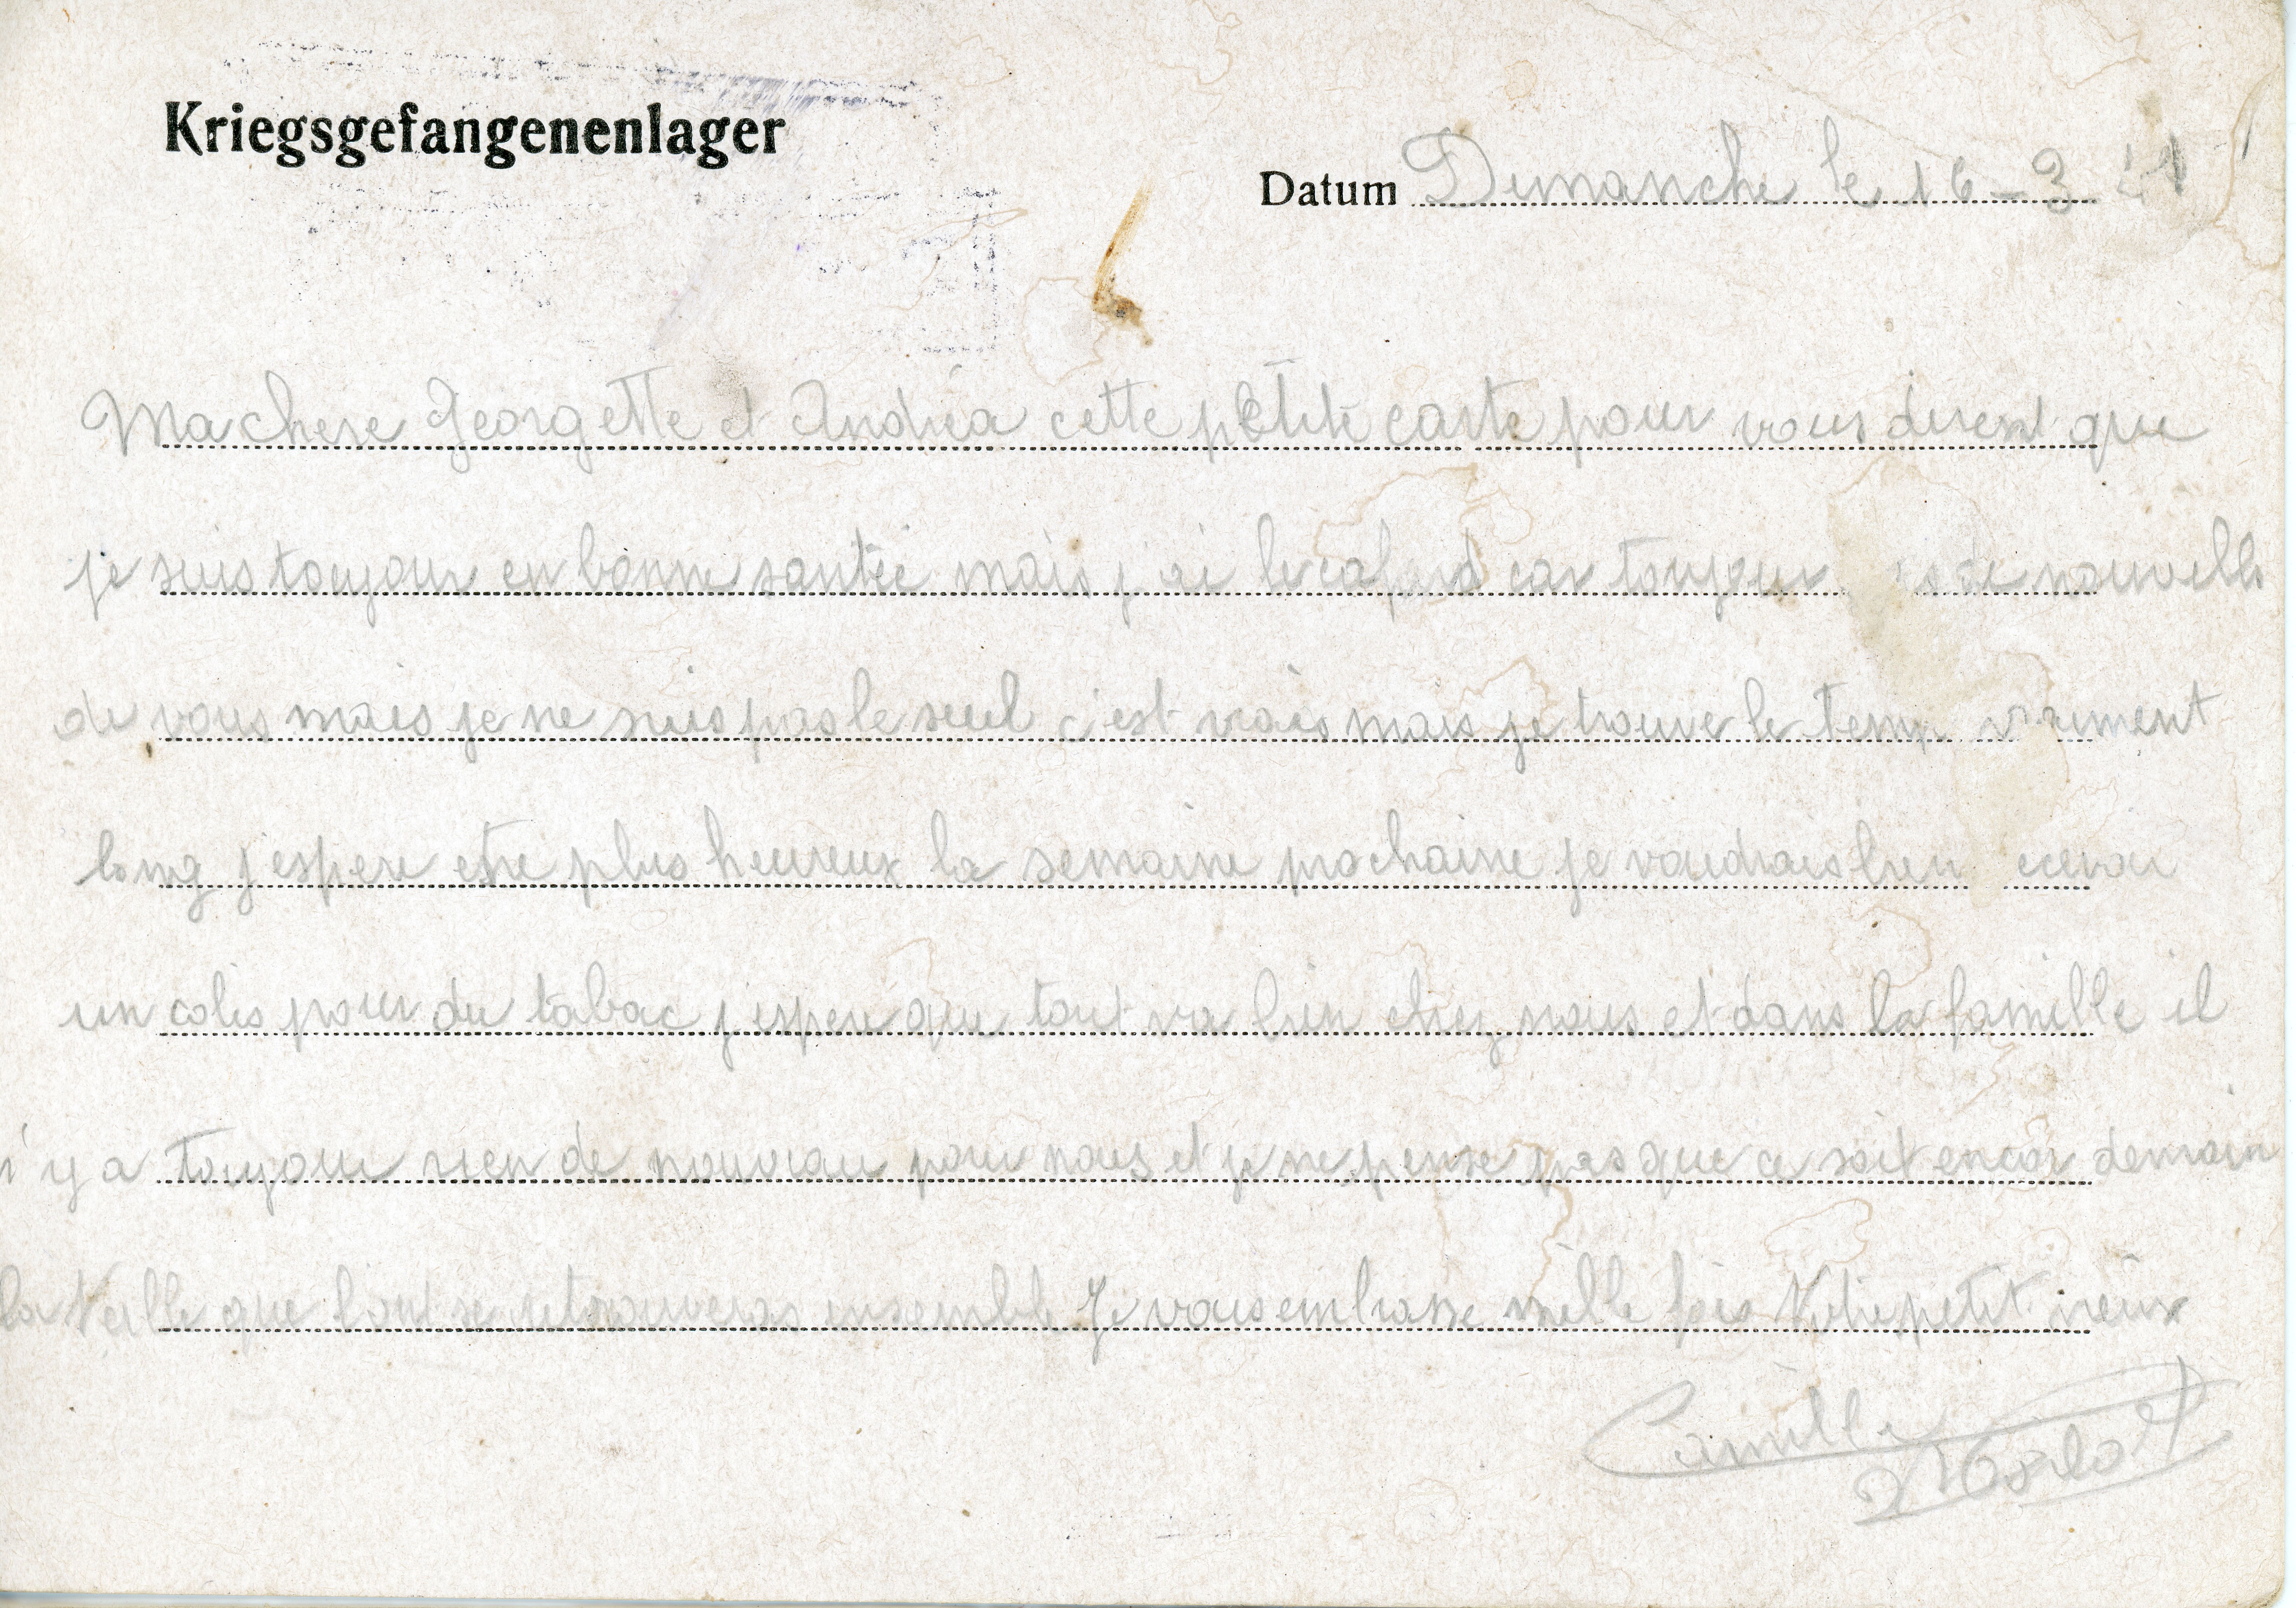 Kriegsgefangenenlager
Datum Dimanche le 16-3 41
Ma chere Georgette et Andréa cette petite carte pour vous disent que
je suis toujour en bonne santée mais j'ai le cafard car toujour de nouvelle
de vous mais je ne suis pas le seul c'est vrais mais je trouve le temp vraiment
long j'espere etre plus heureux la semaine prochaine je voudrais bien recevoir
un colis pour du tabac j'espere que tout va bien chez nous et dans la famille il
n'y a toujour rien de nouveau pour nous et je ne pense pas que ce soit encor demain
la Veille que l'ont se retrouveras ensemble Je vous embrasse mille fois Votre petit vieux
Camille